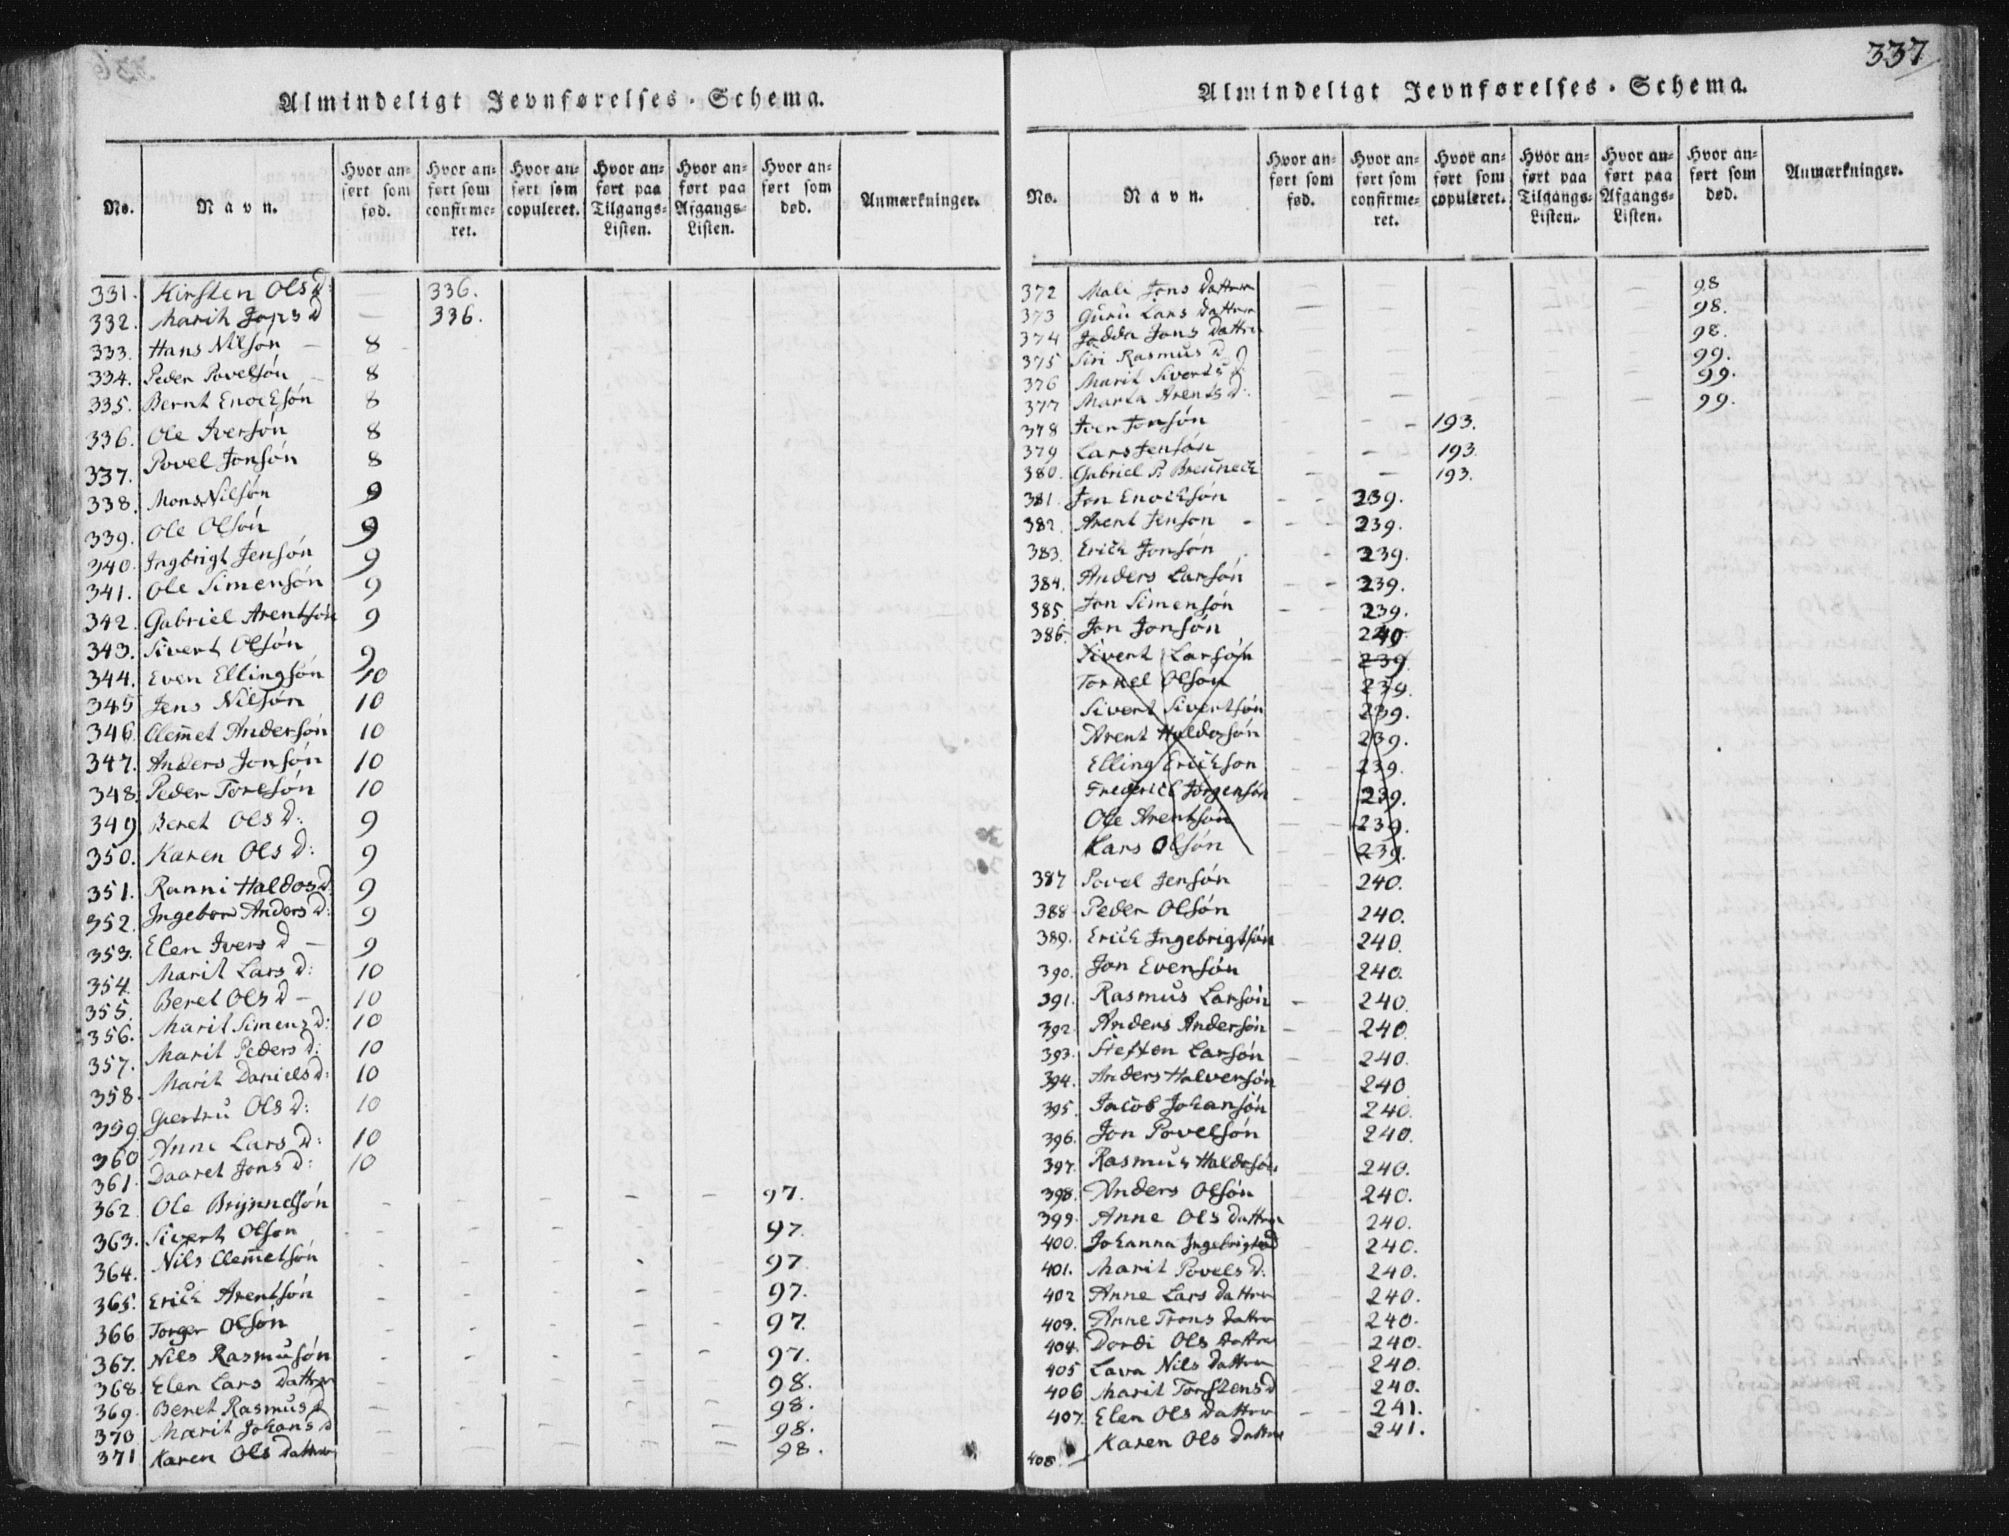 Almindeligt Jevnførelses-Schema.
No. Navn. Hvor anført som fød. Hvor anført som confirmeret. Hvor anført som copuleret. Hvor anført paa Tilgangs-Listen. Hvor anført paa Afgangs-Listen. Hvor anført som død. Anmærkninger.
331. Kirsten Ols D: — 336.
332. Marit Jops D — 336.
333. Hans Nilsøn — 8
334. Peder Povelsøn — 8
335. Bernt Enochsøn 8
336. Ole Iversøn 8
337. Povel Jonsøn 8
338. Mons Nilsøn 9
339. Ole Olsøn 9
340. Ingbrigt Jensøn 9
341. Ole Simensøn 9
342. Gabriel Arentsøn 9
343. Sivert Olsøn 9
344. Even Ellingsøn 10
345 Jens Nilsøn 10
346. Clem̅et Andersøn 10
347. Anders Jonsøn 10
348. Peder Toresøn 10
349 Beret Ols D: 9
350. Karen Ols D: 9
351. Ranni Haldos D. 9
352. Ingebor Anders D: 9
353. Elen Ivers D — 9
354. Marit Lars D: 10
355. Beret Ols D — 10
356. Marit Simens D: 10
357. Marit Peders D: 10
358. Marit Daniels D: 10
359. Giertru Ols D: 10
360 Anne Lars D: 10
361. Daaret Jons D: 10
362. Ole Brynnelsøn 97.
363. Sivert Olson 97.
364. Nils Clem̅etsøn 97.
365. Erich Arentsøn 97.
366 Torger Olsøn 97.
367. Nils Rasmusøn 97.
368. Elen Lars Datter 98.
369. Beret Rasmus D 98.
370 Marit Johans D 98.
371 Karen Ols Datter 98.
337
Almindeligt Jevnførelses-Schema.
No. Navn. Hvor anført som fød. Hvor anført som confirmeret. Hvor anført som copuleret. Hvor anført paa Tilgangs-Listen. Hvor anført paa Afgangs-Listen. Hvor anført som død. Anmærkninger.
372 Mali Jons Datter 98
373 Guru Lars Datter 98.
374 Jadda Jons Datter 98.
375 Siri Rasmus D 99.
376 Marit Siverts D: 99.
377 Marta Arents D: 99.
378 Iver Jonsøn 193.
379 Lars Jensøn 193.
380. Gabriel P. Breuneck 193.
381. Jon Enochsøn 239.
382. Arent Jenson 239.
383. Erich Jonsøn 239.
384. Anders Larsøn 239.
385. Jon Simensøn 239.
386. Jon Jonsøn 240.
Sivert Larsøn 239.
Torkel Olsøn 239.
Sivert Sivertsøn 239.
Arent Haldosøn 239.
Elling Erichson 239.
Frederich Jørgensøn 239.
Ole Arentsøn 239.
Lars Olsøn 239.
387 Povel Jensøn 240.
388 Peder Olsøn 240.
389. Erich Ingebrigtsøn 240.
390. Jon Evensøn 240.
391. Rasmus Larsøn 240.
392. Anders Andersøn 240.
393. Steffen Larsøn 240.
394. Anders Halvorsøn 240.
395. Jacob Johansøn 240.
396. Jon Povelsøn 240.
397. Rasmus Haldosøn 240.
398. Anders Olsøn 240.
399. Anne Ols Datter 240.
400. Johanna Ingebrigts D 240.
401. Marit Povels D: 240.
402 Anne Lars Datter 240.
403. Anne Trons Datter 240.
404. Dordi Ols Datter 240.
405 Lava Nils Datter 240.
406 Marit Torstens D 240.
407. Elen Ols Datter 241.
408. Karen Ols Datter 241.